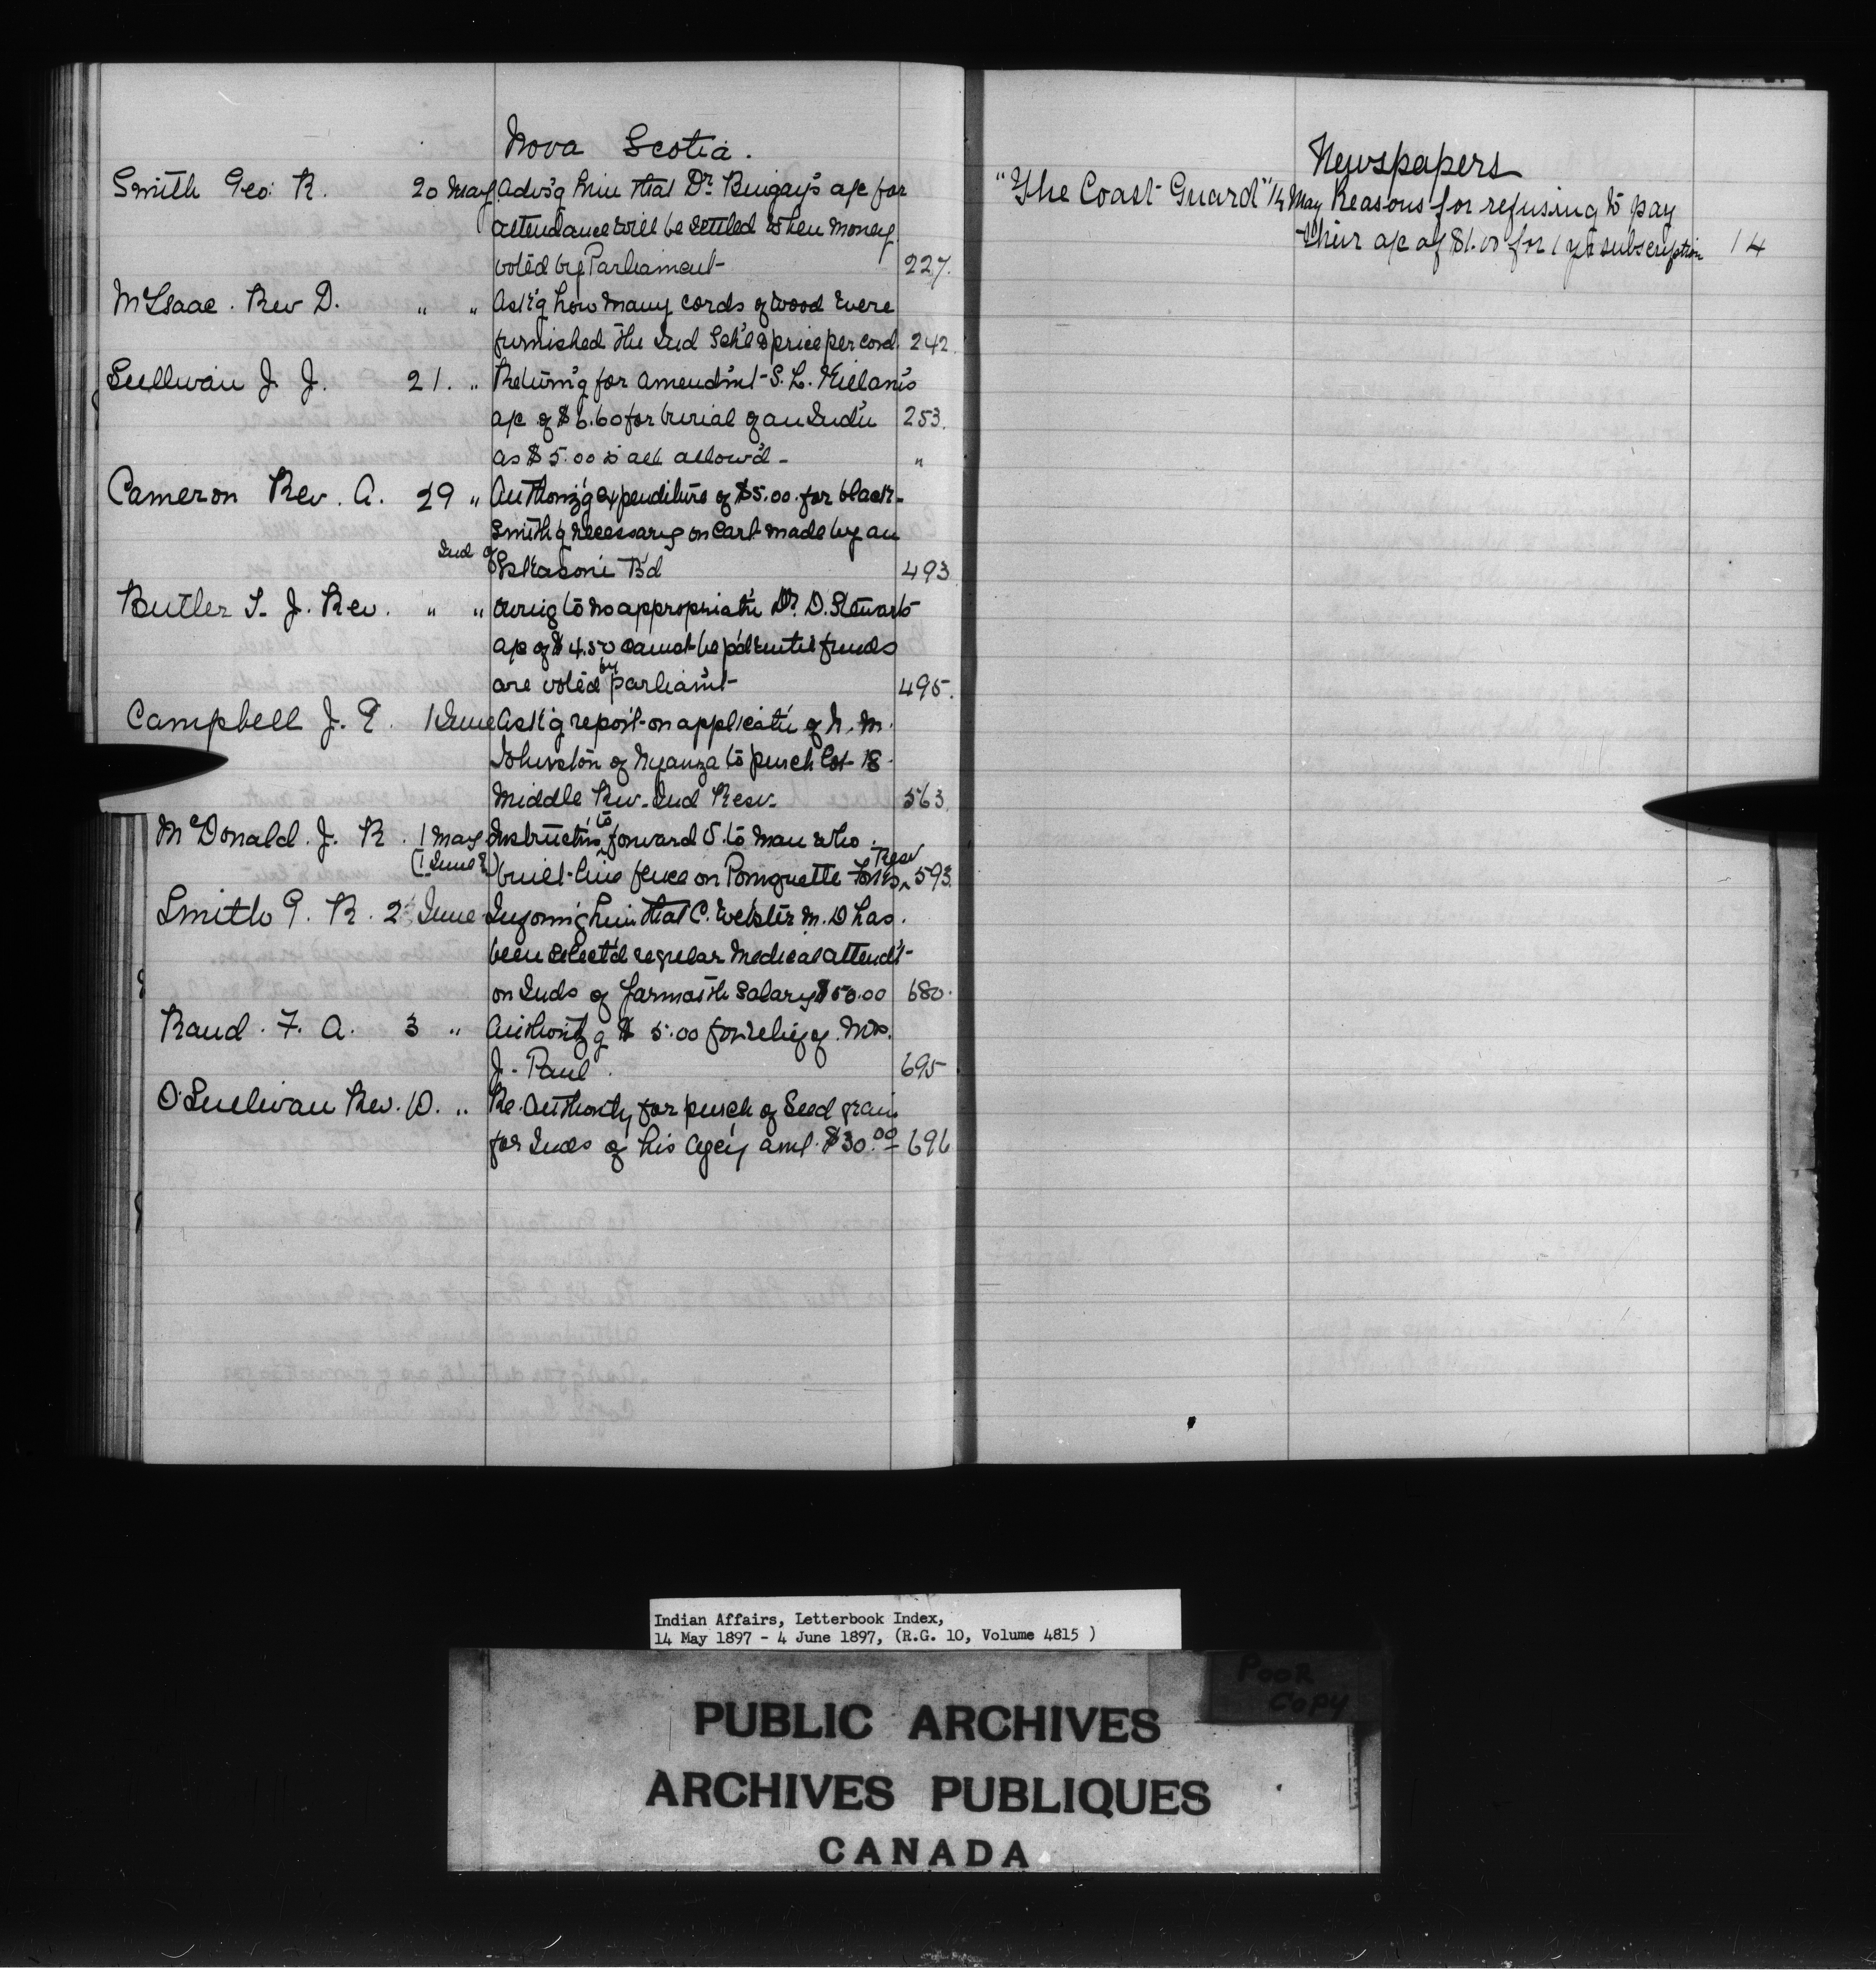 Nova Scotia.
Smith Geo. R. 20 May Advs'g him that Dr. Bingay's a/c for
attendance will be settled when money
voted by Parliament 227.
McIsaac. Rev D. " " Ask'g how many cords of wood were
furnished the Ind Sch'l & price per cord. 242.
Sullivan J. J. 21. " Return'g for amendm't S. L. Killam's
a/c of $6.60 for burial of an Ind'n 253.
as $5.00 is all allow'd - "
Cameron Rev. A. 29 " Authoriz'g expenditure of $5.00 for black-
smith'g necessary on cart made by an
Ind of Eskasoni B'd 493
Butler T. J. Rev. " " Owing to no appropriat'n Dr. D. Stewart's
a/c of $4.50 cannot be p'd until funds
are voted by parliam't 495.
Campbell J. E. 1 June Ask'g report on applicat'n of N. M.
Johnston of Nyanza to purch lot 18
Middle Riv. Ind Resv. 563.
McDonald. J. R. 1 May Instruct'ns to forward to man who
(1 June?) built line fence on Pomquette Forks Resv 593.
Smith G. R. 2 June Informing him that C. Webster M.D has
been select'd regular medical attend't
on Inds of Yarmouth Salary $50.00 680.
Rand. F. A. 3 " Authoriz'g $5.00 for relief of Mrs.
J. Paul. 695
O'Sullivan Rev. D. " Re. Authority for purch of Seed grain
for Inds of his Agcy amt. $30.00 696
Newspapers
"The Coast Guard" 14 May Reasons for refusing to pay
their a/c of $1.00 for 1 yr subscription 14
Indian Affairs, Letterbook Index,
14 May 1897 - 4 June 1897, (R.G. 10, Volume 4815 )
POOR
COPY
PUBLIC ARCHIVES
ARCHIVES PUBLIQUES
CANADA